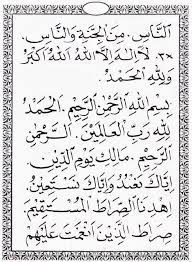 اَلنَّاسِ. مِنَ الْجِنَّةِ وَالنَّاسِ.
٣x. لَا اِلٰهَ اِلَّا اللهُ اَللهُ اَكْبَرُ
وَلِلّٰهِ الْحَمْدُ
بِسْمِ اللهِ الرَّحْمٰنِ الرَّحِيْمِ. اَلْحَمْدُ
لِلّٰهِ رَبِّ الْعَالَمِيْنَ. اَلرَّحْمٰنِ
الرَّحِيْمِ. مَالِكِ يَوْمِ الدِّيْنِ.
اِيَّاكَ نَعْبُدُ وَاِيَّاكَ نَسْتَعِيْنُ.
اِهْدِنَا الصِّرَاطَ الْمُسْتَقِيْمَ.
صِرَاطَ الَّذِيْنَ اَنْعَمْتَ عَلَيْهِمْ